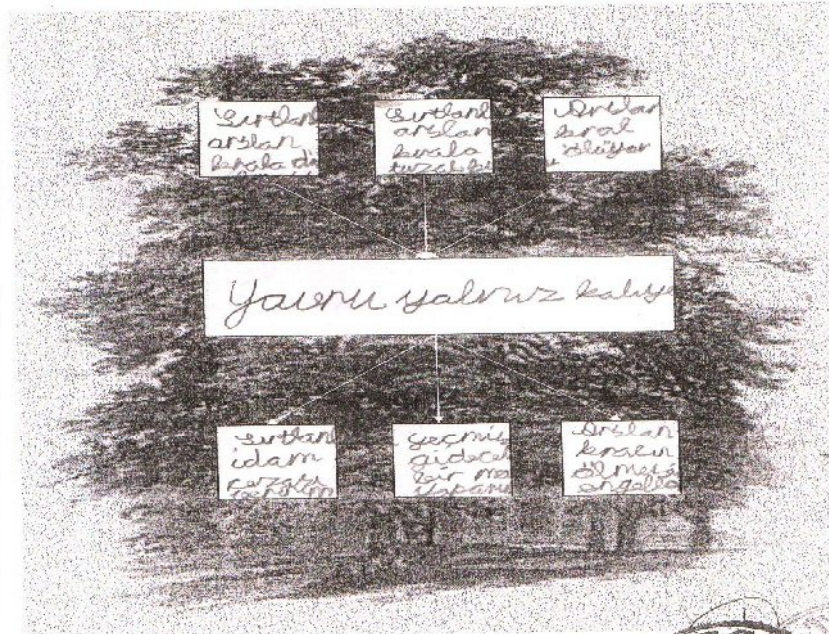 Sırtlanl
arslan
krala
Sırtlanl
arslan
krala
tuzak k
Arslan
kral
ölüyor
Yavru yalnız kalıyo
Sırtlanl
idam
cezası
geçmiş
gidecek
bir ma
yaparı
Arslan
kralın
ölmesi
engelle